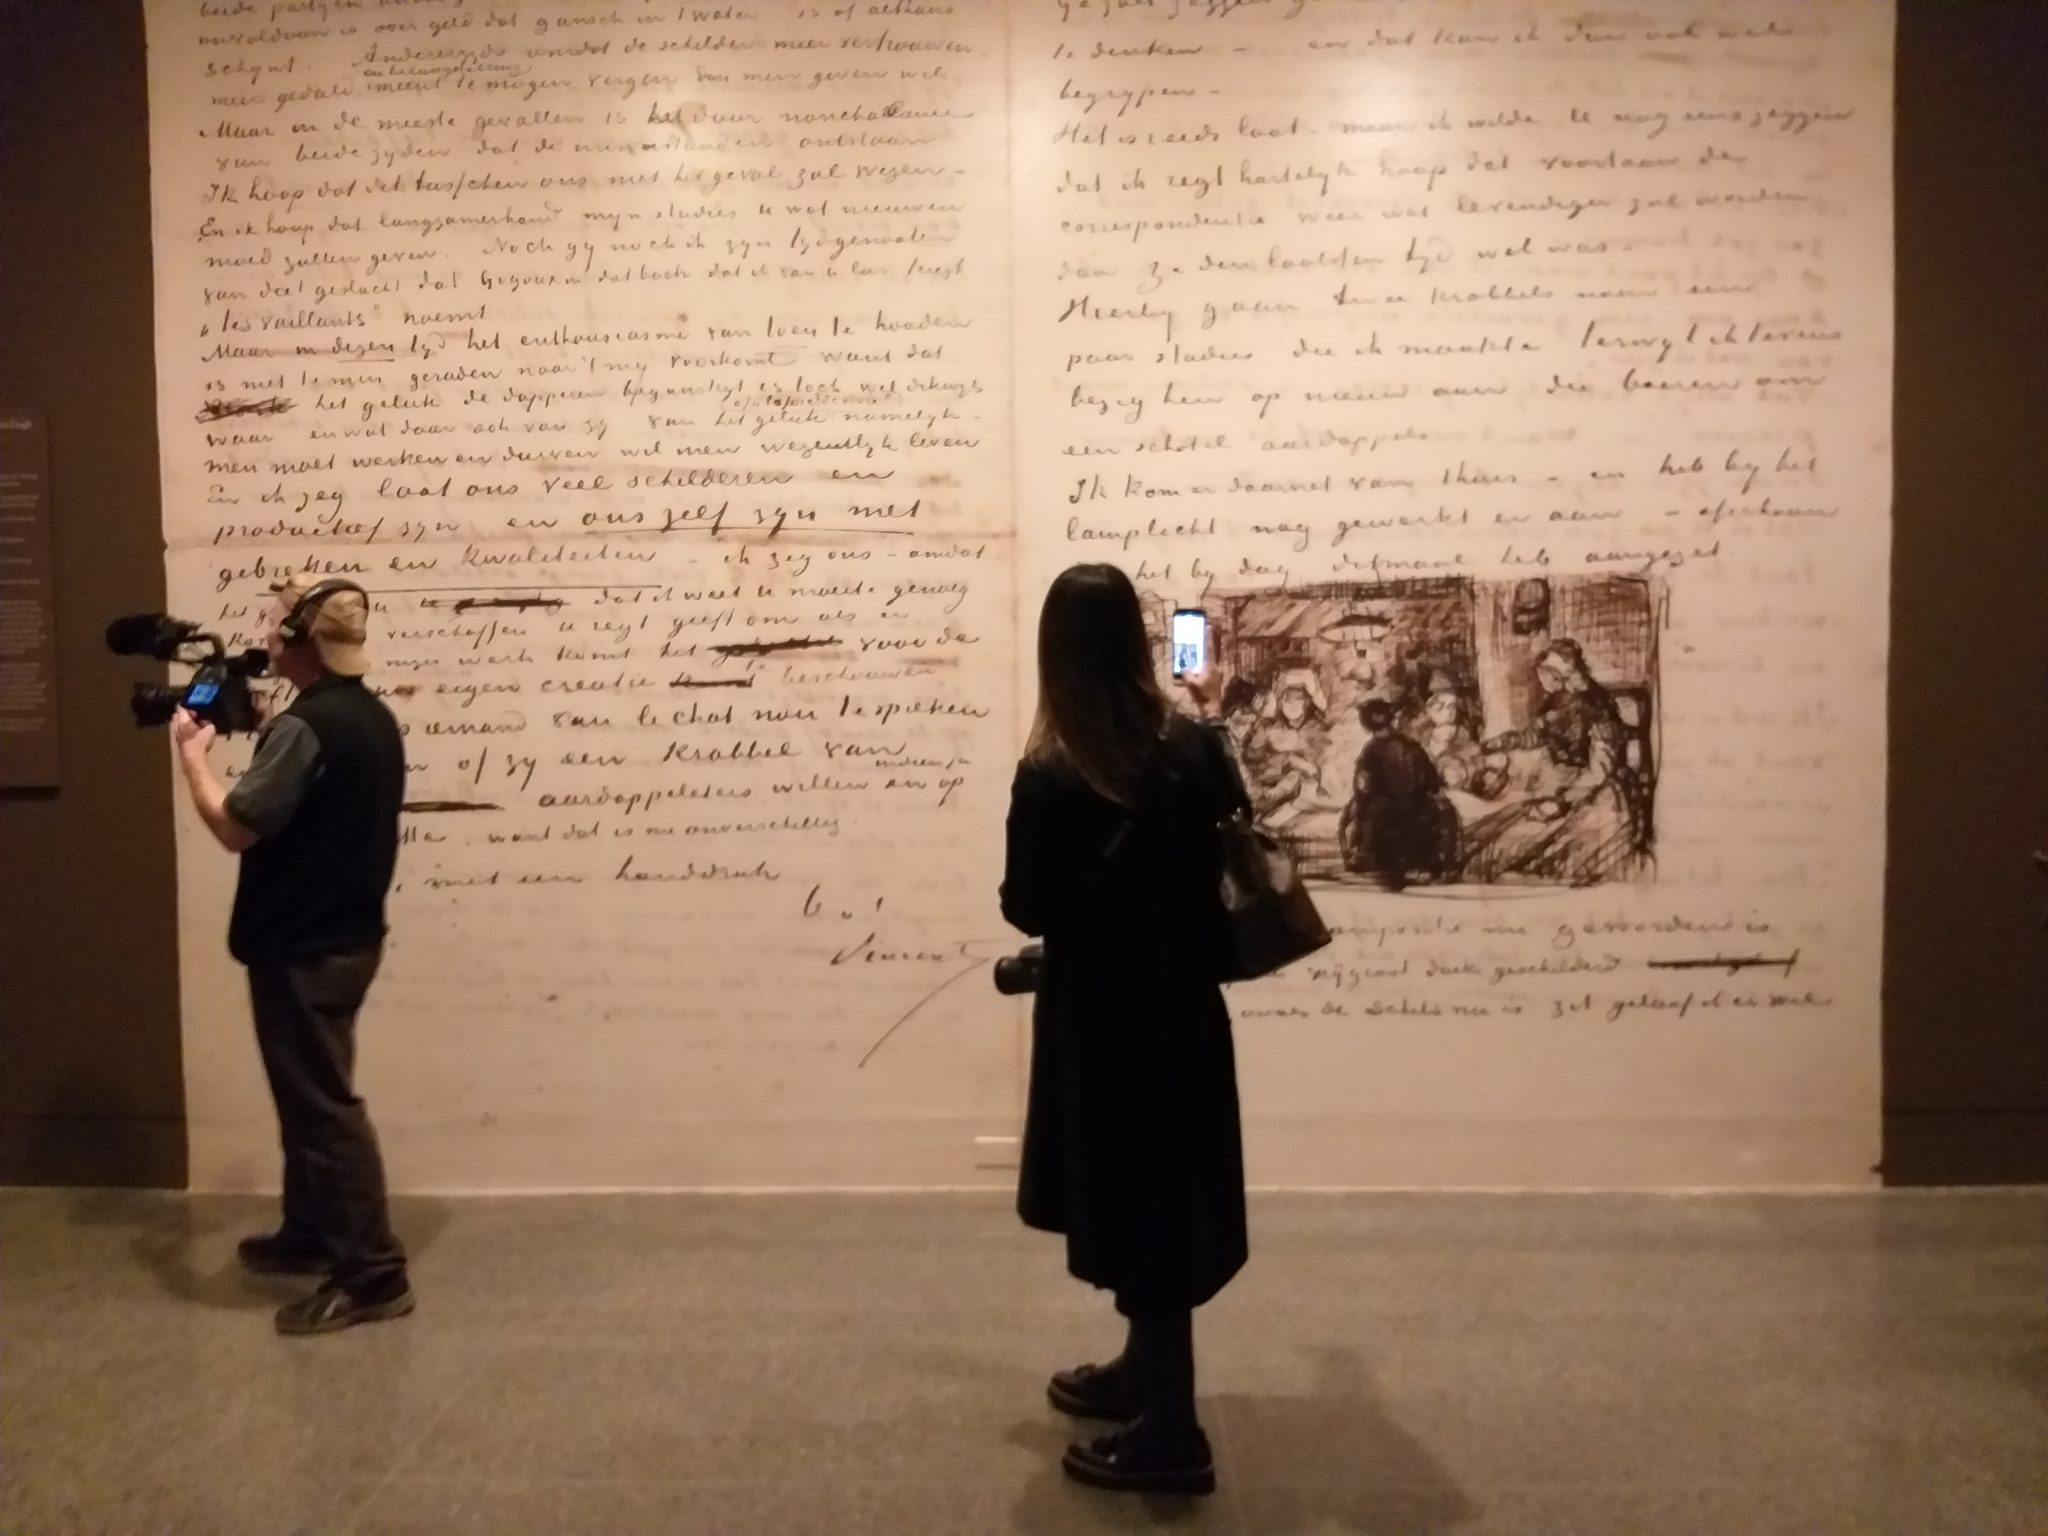 onvoldaan is over geld dat gansch in 't water is of althans
schynt. Anderzyds omdat de schilder meer vertrouwen
en belangstelling
men geduld meent te mogen vergen dan men geven wil
Maar in de meeste gevallen is het door nonchalance
van beide zyden dat de misverstanden ontstaan
Ik hoop dat dit tusschen ons niet het geval zal wezen -
En ik hoop dat langzamerhand myn studies u wat nieuwen
moed zullen geven. Noch gy noch ik zyn tydgenooten
van dat geslacht dat Gigoux in dat boek dat ik van u las teregt
„les vaillants" noemt
Maar in dezen tyd het enthousiasme van toen te houden
is niet temin geraden naar 't my voorkomt want dat
het geluk de dapperen begunstigt is toch wel dikwyls
waar en wat daar ook van zy van het geluk namelyk -
men moet werken en durven wil men wezentlyk leven
En ik zeg laat ons veel schilderen en
productief zyn en ons zelf zyn met
gebreken en kwaliteiten - ik zeg ons - omdat
het dat ik weet u moeite genoeg
verschaffen u regt geeft om als er
myn werk komt het voor de
eigen creatie beschouwen
iemand van le chat noir te spreken
of zy een krabbel van
indien ja
aardappeleters willen en op
want dat is me onverschillig.
met een handdruk
b.à t
Vincent
te denken - en dat kan ik dan ook wel
begrypen -
Het is reeds laat - maar ik wilde U nog eens zeggen
dat ik regt hartelyk hoop dat voortaan de
correspondentie weer wat levendiger zal worden
dan ze den laatsten tyd wel was -
Hierby gaan twee krabbels naar een
paar studies die ik maakte terwyl ik tevens
bezig ben op nieuw aan die boeren om
een schotel aardappels
Ik kom er daarnet van thuis - en heb by het
lamplicht nog gewerkt er aan - ofschoon
het by dag ditmaal heb aangezet
nu geworden is
vrij groot doek geschilderd
de schets nu is zit geloof ik er wel